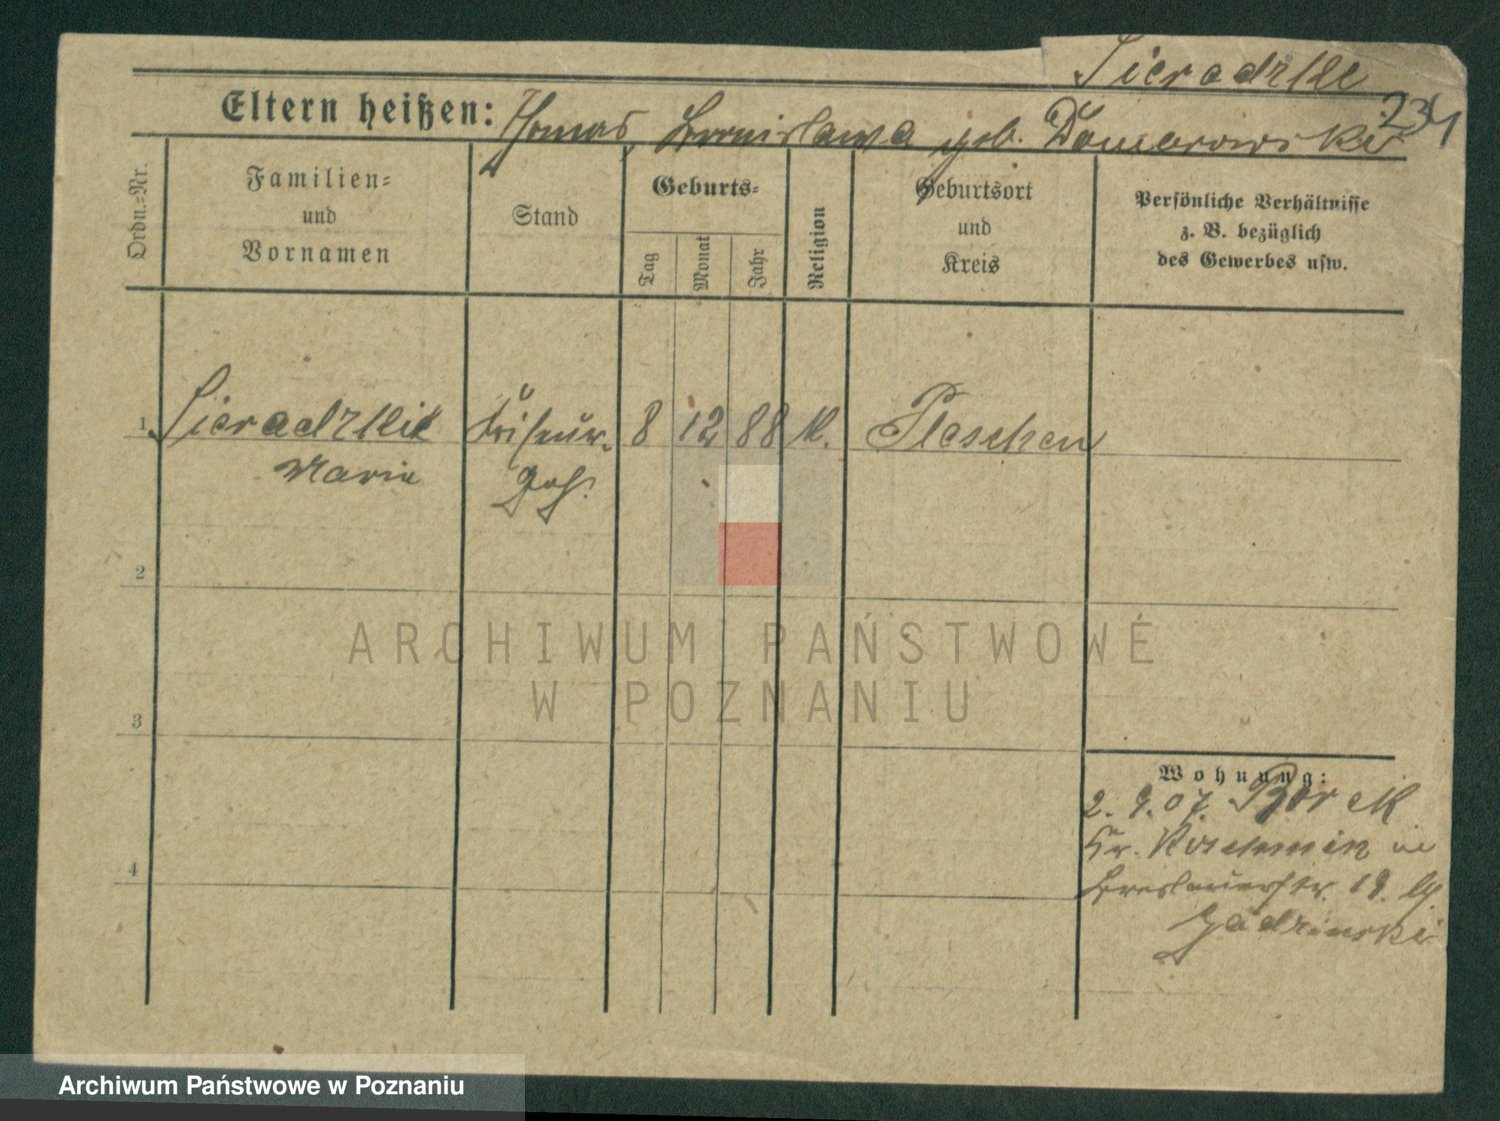 Sieradzki
234
Eltern heißen: Thomas, Bronislawa geb. Dombrowski
Ordn.=Nr.
Familien=
und
Vornamen
Stand
Geburts=
Tag
Monat
Jahr
Religion
Geburtsort
und
Kreis
Persönliche Verhältnisse
z. B. bezüglich
des Gewerbes usw.
1 Sieradzki 8 12 88 K. Pleschen
Marie
2
3
4
Wohnung:
2. 9. 07. Borek
Kr. Koschmin in
Breslauerstr. 19.
ARCHIWUM PAŃSTWOWE
W POZNANIU
Archiwum Państwowe w Poznaniu